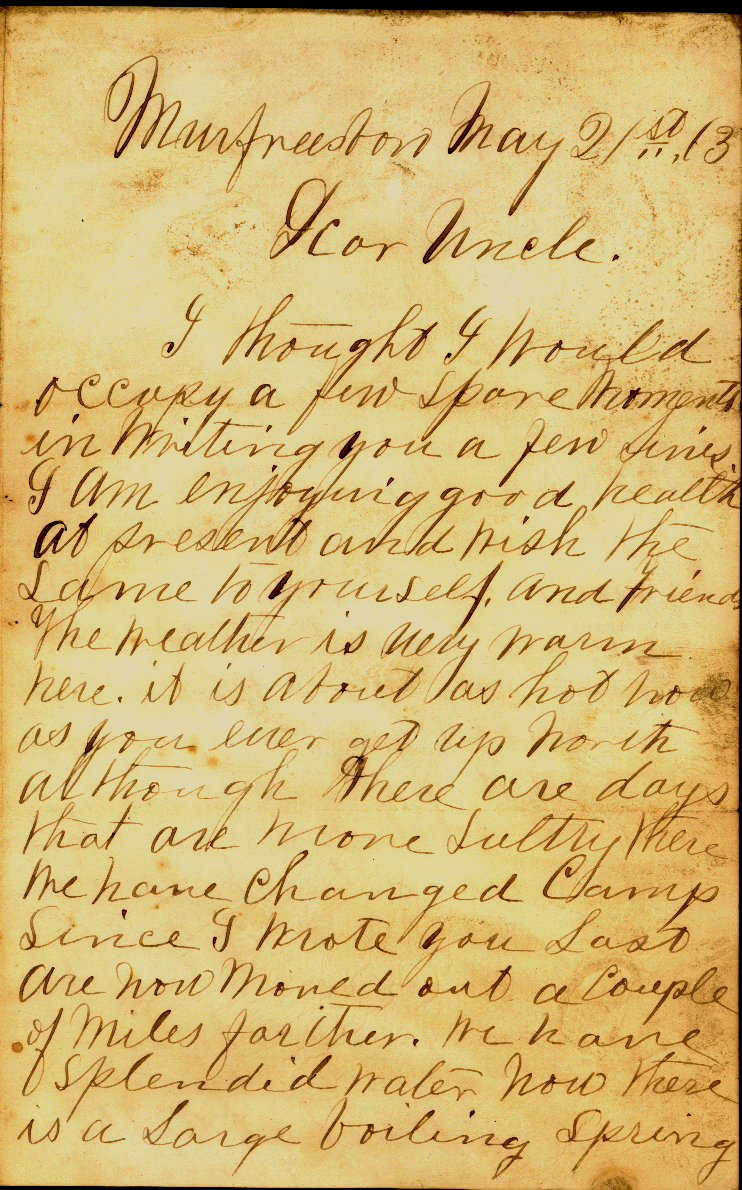 Murfreesboro May 21st. 63
Dear Uncle.
I thought I would
occupy a few spare moments
in writing you a few lines
I am enjoying good health
at present and wish the
same to yourself, and friends
The weather is very warm
here. it is about as hot now
as you ever get up North
although there are days
that are more sultry there
We have changed Camp
since I wrote you last
are now moved out a couple
of miles farther. We have
splendid water now there
is a large boiling spring